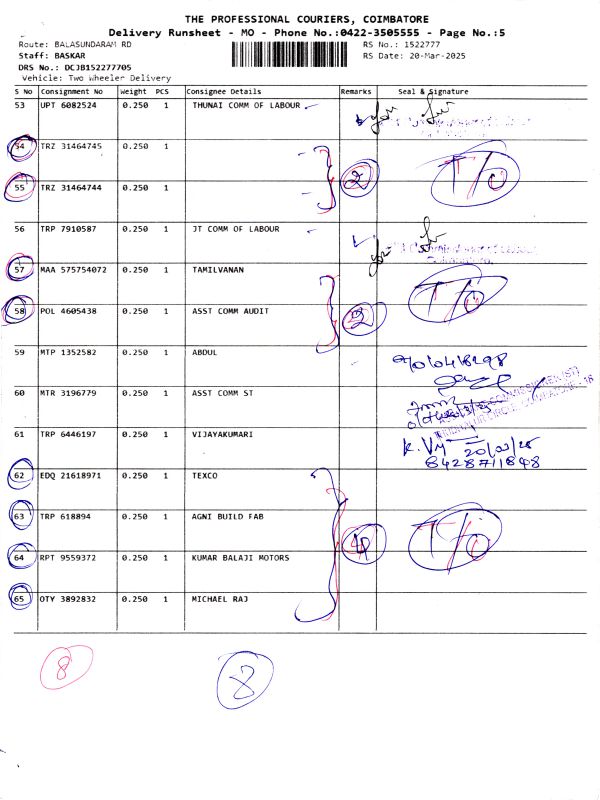 THE PROFESSIONAL COURIERS, COIMBATORE
Delivery Runsheet - MO - Phone No.:0422-3505555 - Page No.:5
Route: BALASUNDARAM RD RS No.: 1522777
Staff: BASKAR RS Date: 20-Mar-2025
DRS No.: DCJB152277705
Vehicle: Two Wheeler Delivery
S No Consignment No Weight PCS Consignee Details Remarks Seal & Signature
53 UPT 6082524 0.250 1 THUNAI COMM OF LABOUR
54 TRZ 31464745 0.250 1
55 TRZ 31464744 0.250 1 2 T/O
56 TRP 7910587 0.250 1 JT COMM OF LABOUR
57 MAA 575754072 0.250 1 TAMILVANAN
58 POL 4605438 0.250 1 ASST COMM AUDIT 2 T/O
59 MTP 1352582 0.250 1 ABDUL
60 MTR 3196779 0.250 1 ASST COMM ST
61 TRP 6446197 0.250 1 VIJAYAKUMARI 20/03/25
8428711848
62 EDQ 21618971 0.250 1 TEXCO
63 TRP 618894 0.250 1 AGNI BUILD FAB
64 RPT 9559372 0.250 1 KUMAR BALAJI MOTORS 4 T/O
65 OTY 3892832 0.250 1 MICHAEL RAJ
8 8